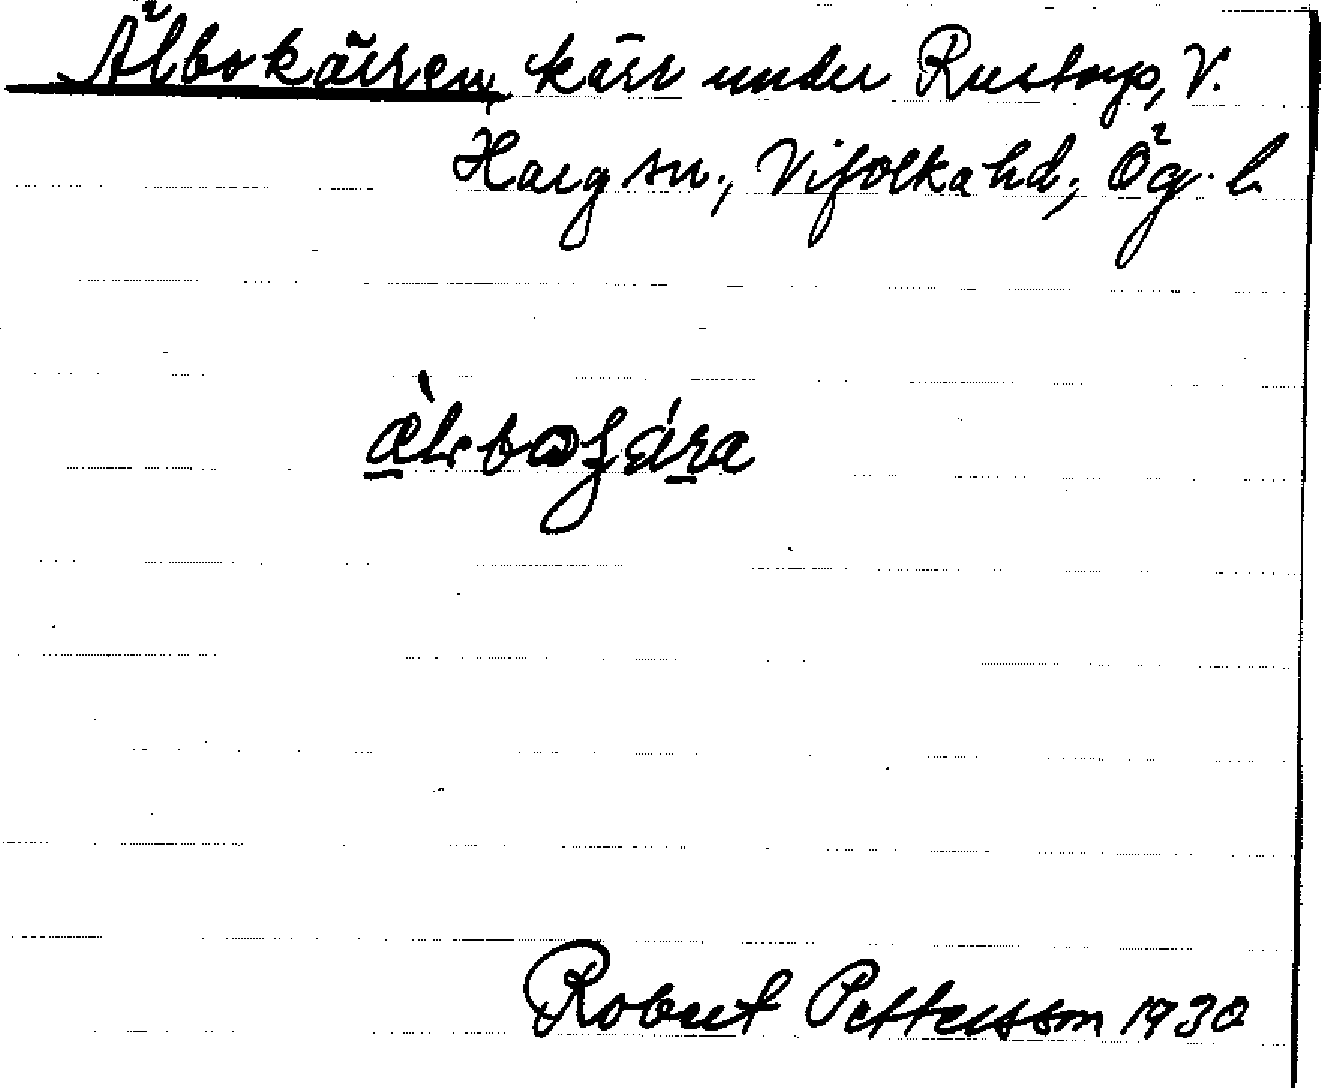 Älbokärren, kärr under Rustorp, V.
Harg sn., Vifolka hd; Ög. l.
Robert Pettersson 1930